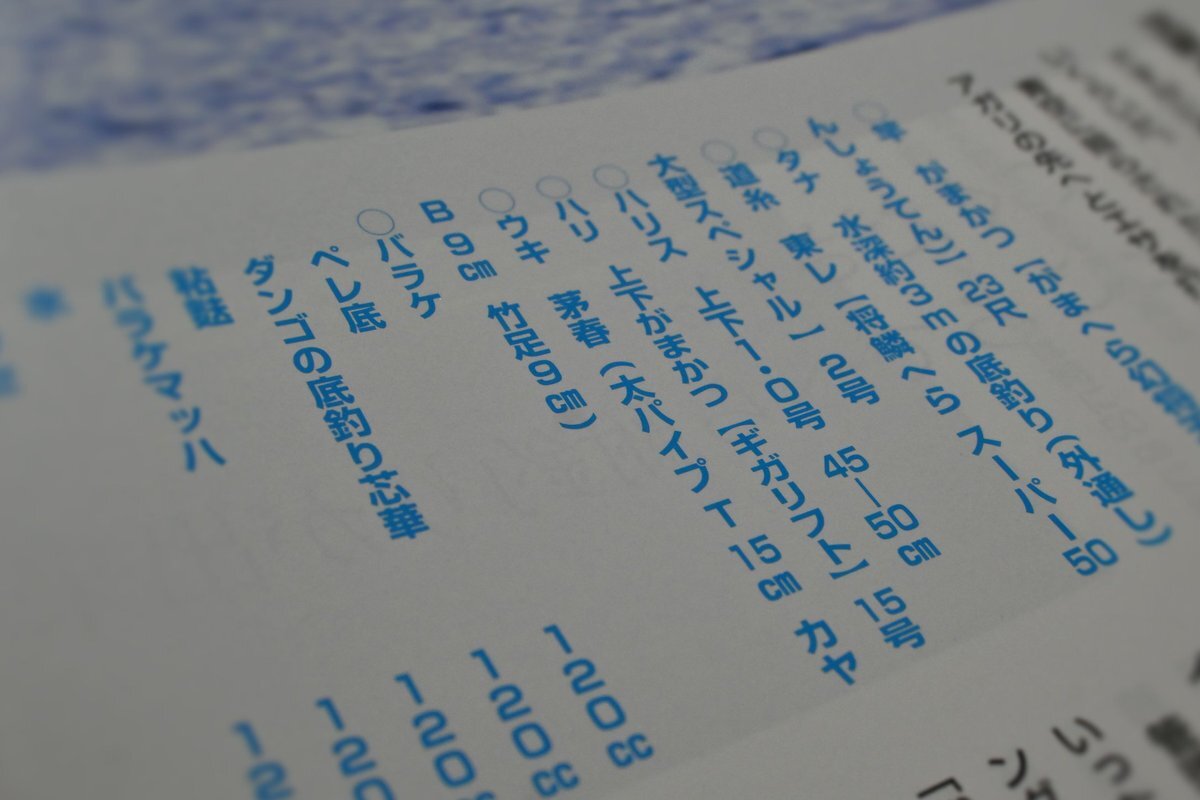 アガリの先へとエサを
○竿 がまかつ【がまへら幻
んしょうてん)】23尺
○タナ 水深約3mの底釣り(外通し)
○道糸 東レ【将鱗 へら スーパー50
大型スペシャル】2号
○ハリス 上下1・0号 45—50cm
○ハリ 上下がまかつ【ギガリフト】15号
○ウキ 茅春(太パイプT15cm カヤ
B9cm 竹足9cm)
○バラケ
ペレ底 120cc
ダンゴの底釣り芯華 120cc
粘麸 120c
バラケマッハ 120
水 12
いっ
ン
「